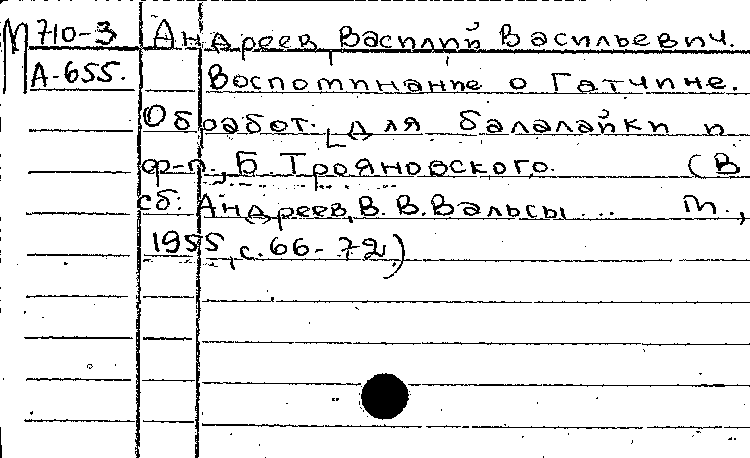 М 710-3 Андреев, Василий Васильевич.
А-655. Воспоминание о Гатчине.
Обработ. для балалайки и
ф-п., Б. Трояновского. (В
сб: Андреев, В. В. Вальсы... М.,
1955, с. 66-72)